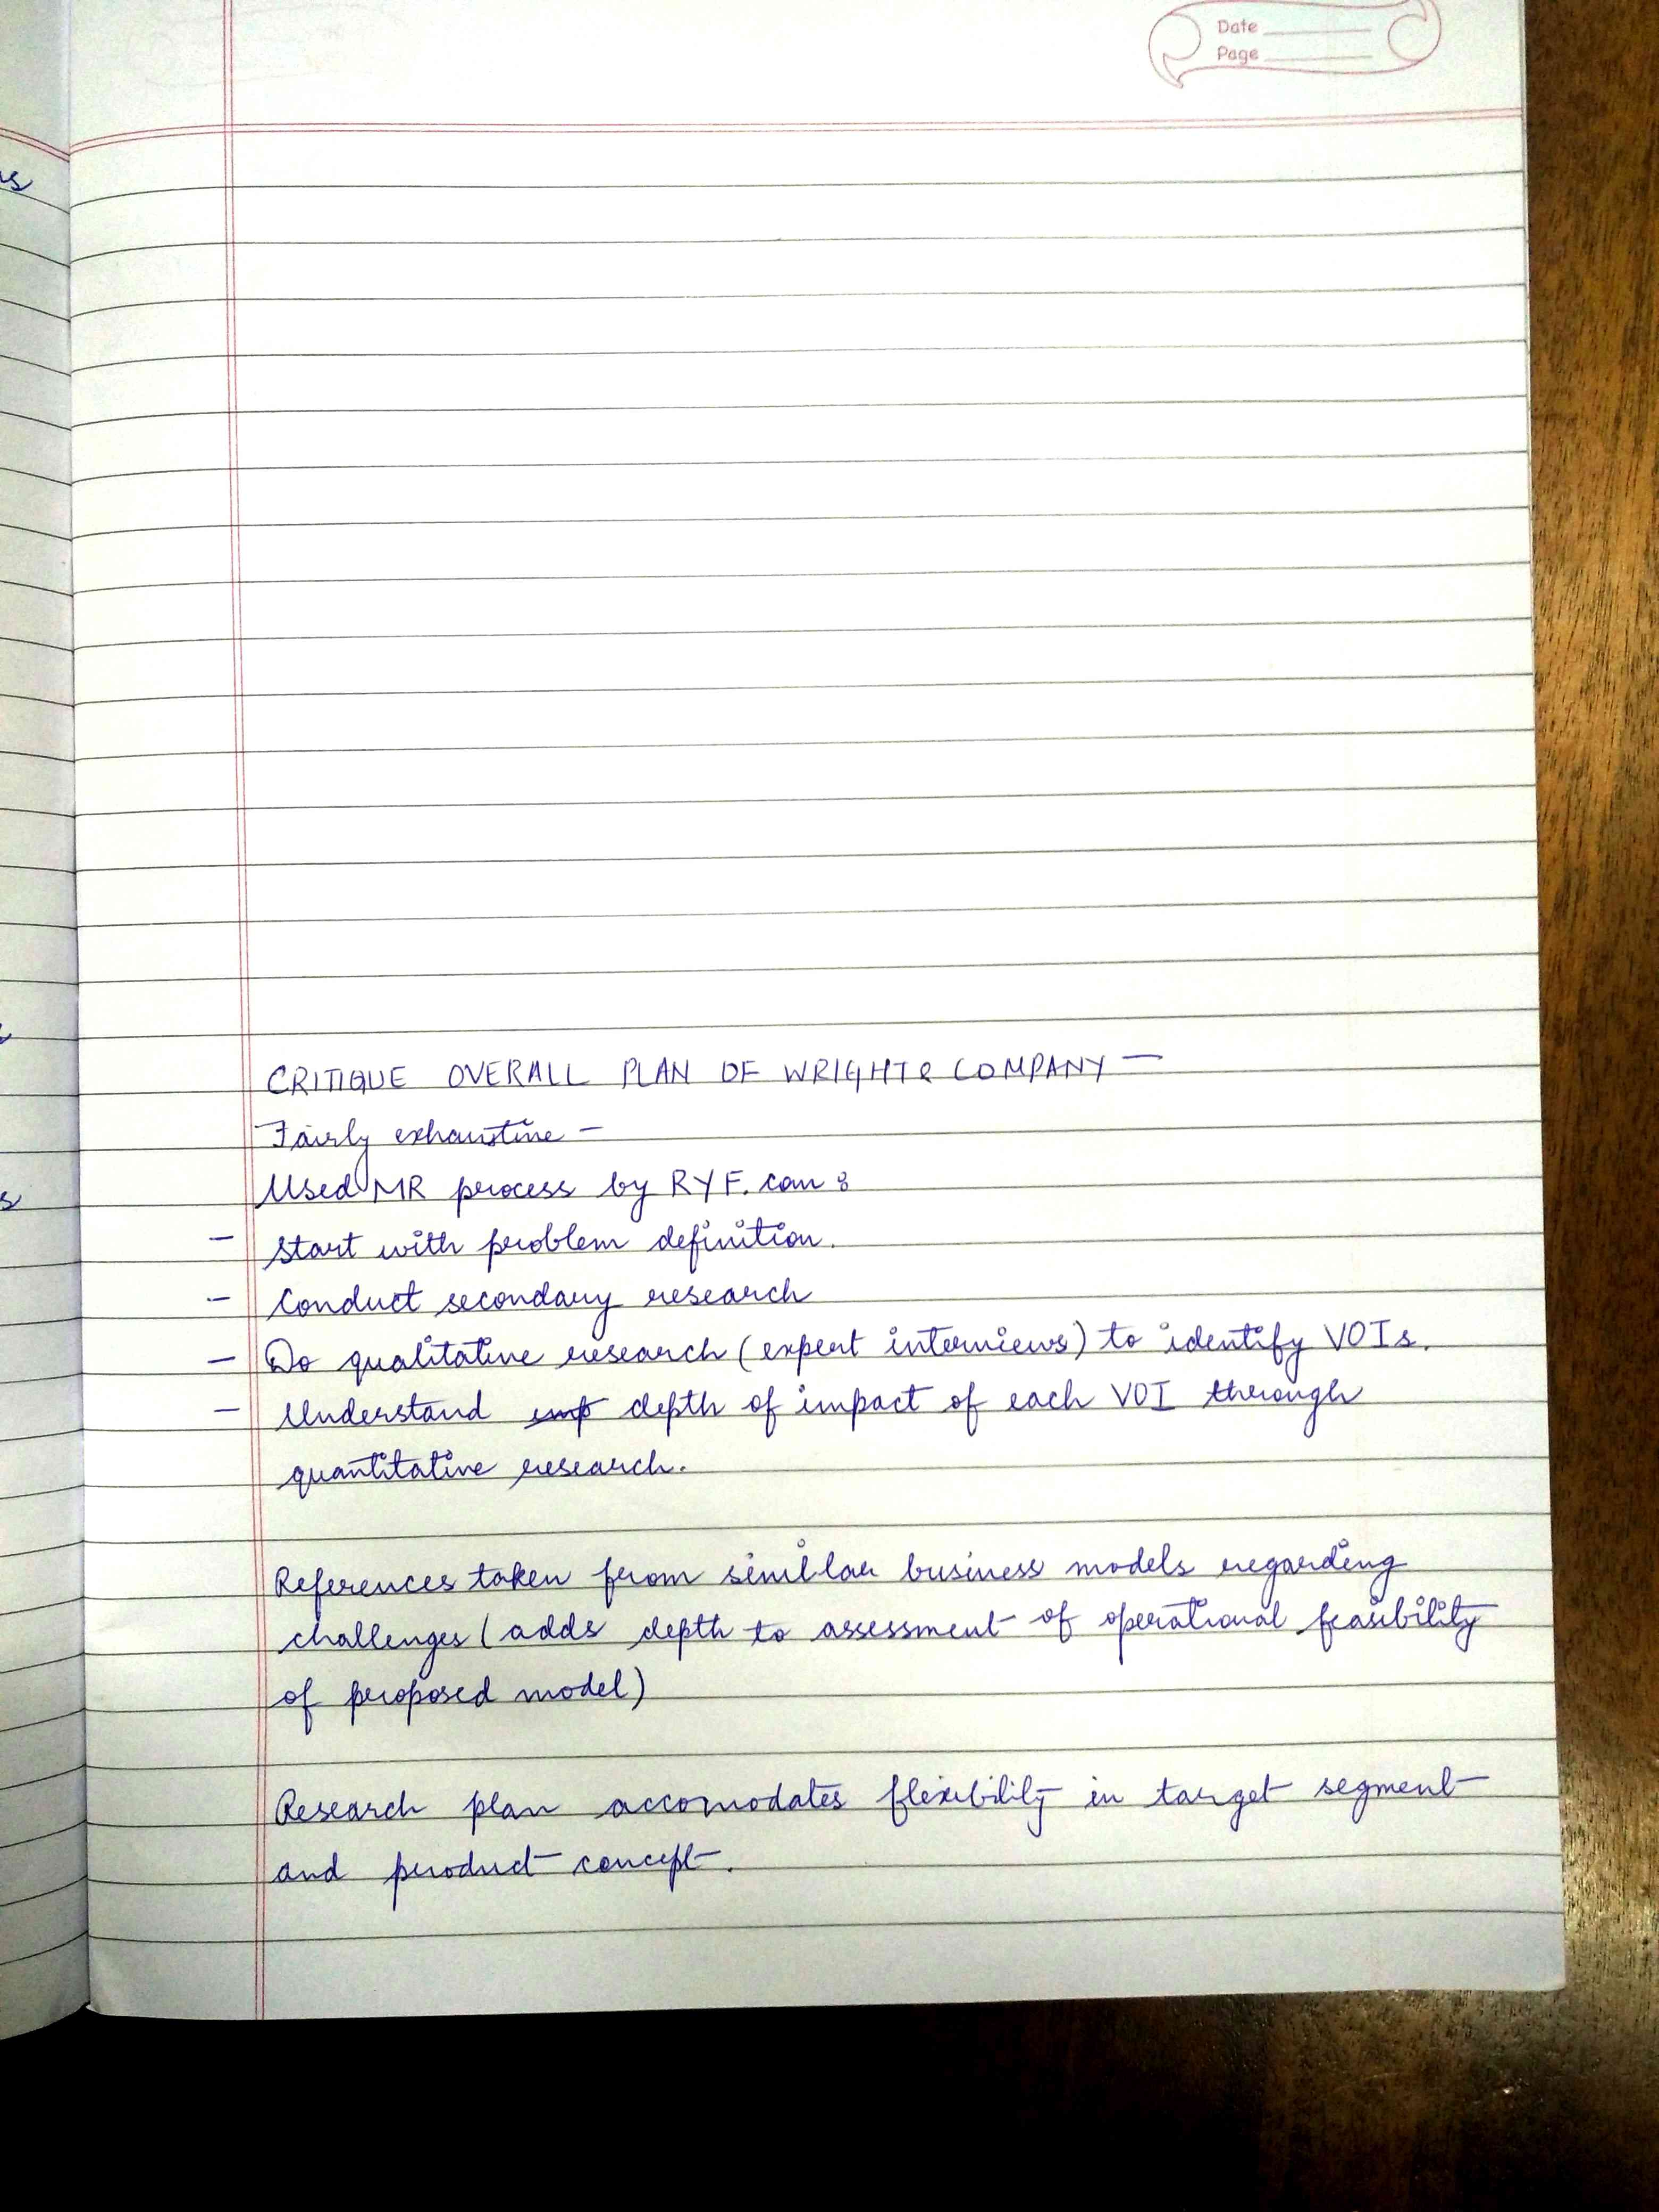 Date
Page
CRITIQUE OVERALL PLAN OF WRIGHT & COMPANY —
Fairly exhaustive —
Used MR process by RYF. com :
- Start with problem definition.
- Conduct secondary research
- Do qualitative research (expert interviews) to identify VOIs.
- Understand imp depth of impact of each VOI through
quantitative research.
References taken from similar business models regarding
challenges (adds depth to assessment of operational feasibility
of proposed model)
Research plan accomodates flexibility in target segment
and product concept.